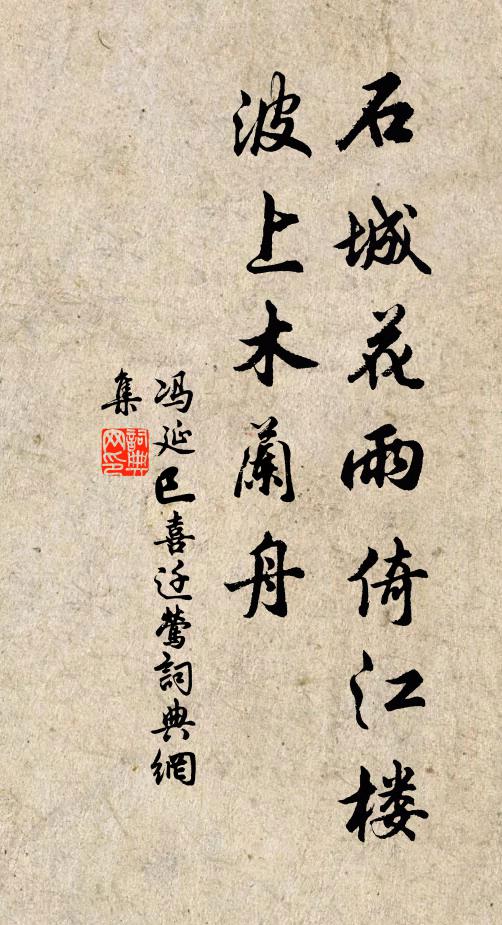 石城花雨倚江楼
波上木蘭舟
冯延巳喜迁莺詞典網
集
詞典
网印